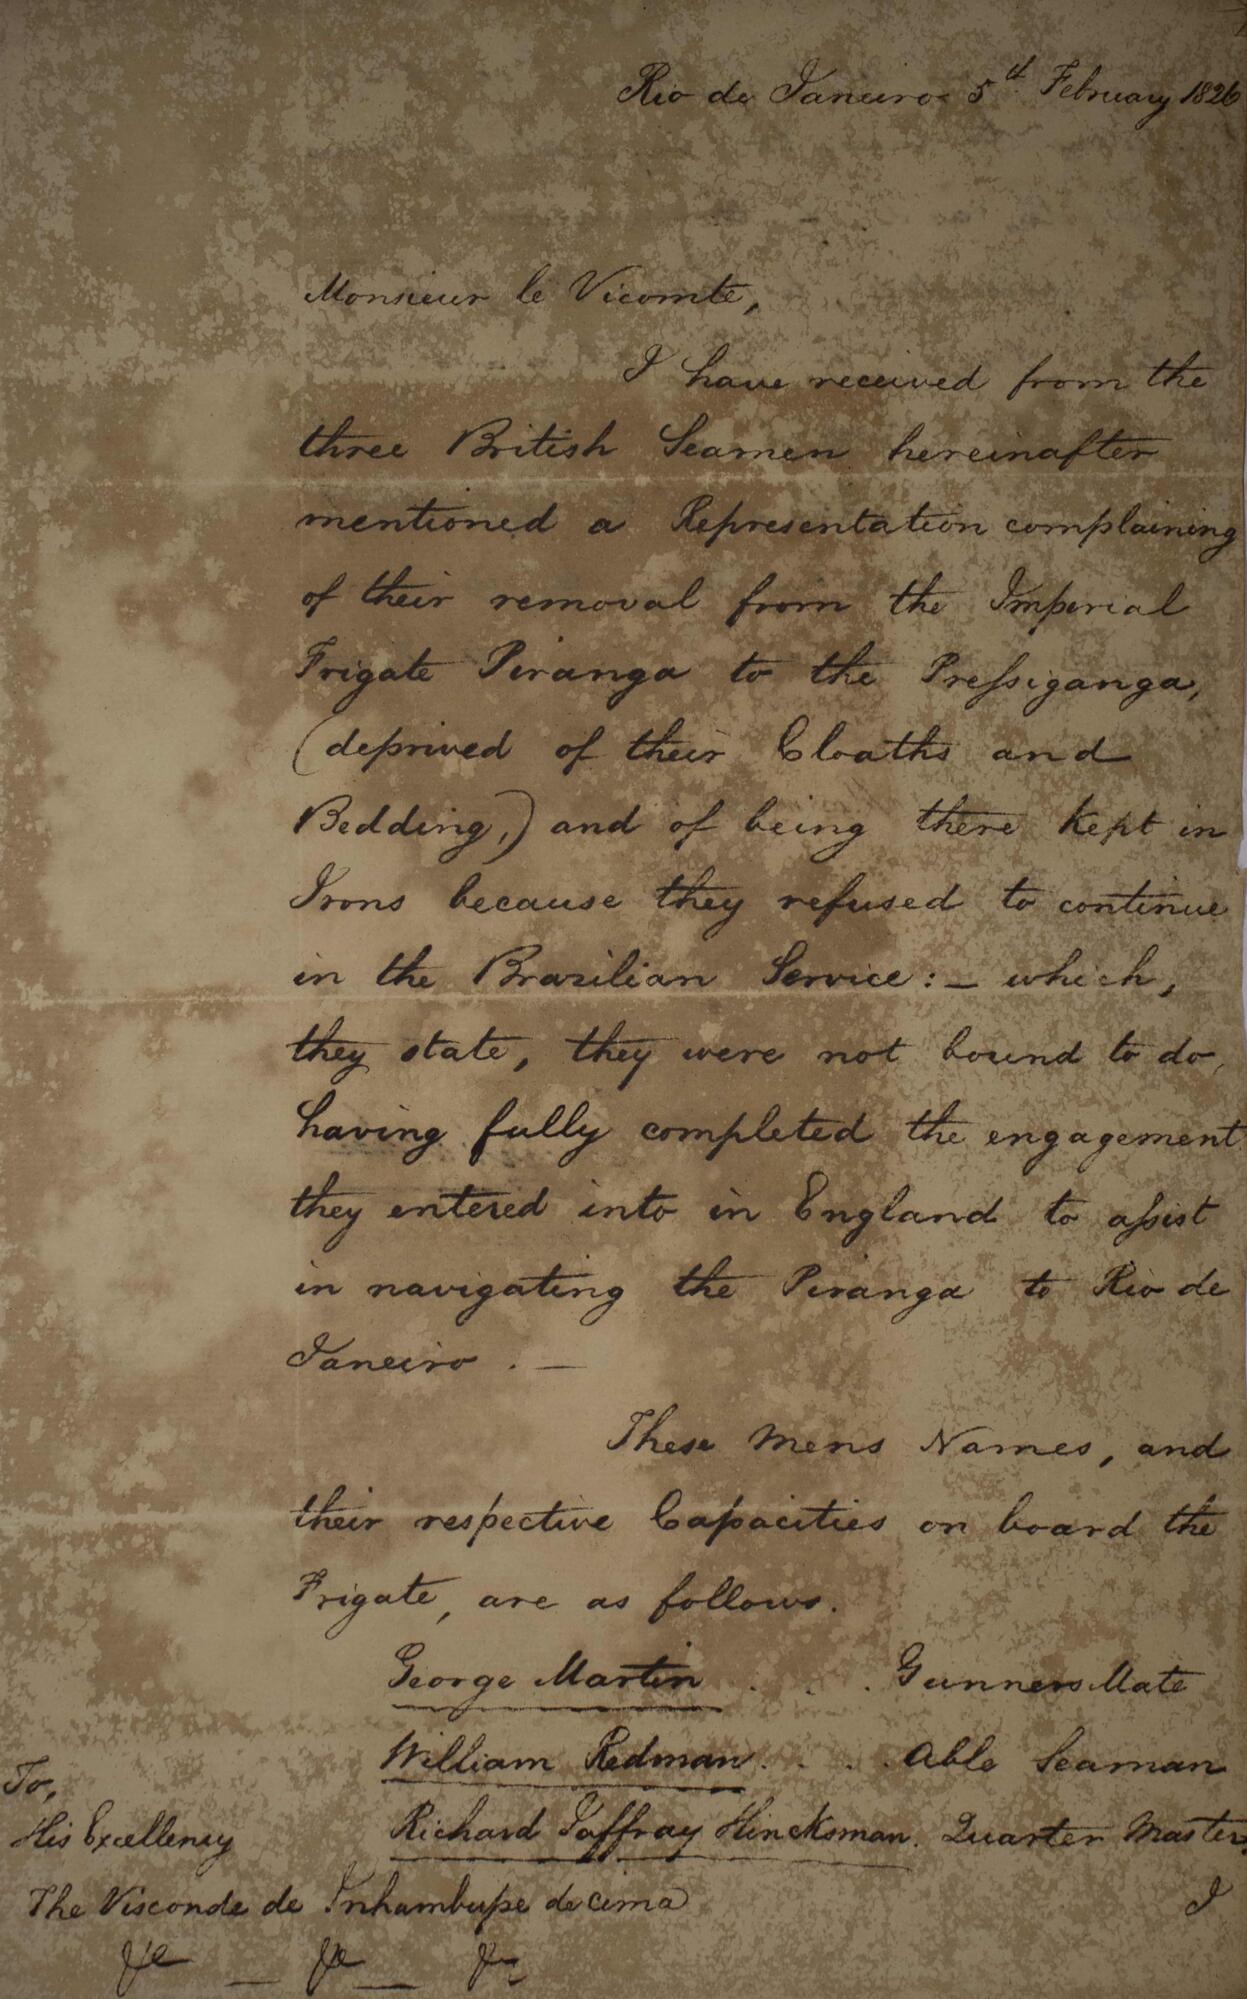 Rio de Janeiro 5th February 1826
Monsieur le Vicomte,
I have received from the
three British Seamen hereinafter
mentioned a Representation complaining
of their removal from the Imperial
Frigate Piranga to the Presiganga,
(deprived of their Cloaths and
Bedding,) and of being there kept in
Irons because they refused to continue
in the Brazilian Service: – which,
they state, they were not bound to do,
having fully completed the engagement
they entered into in England to assist
in navigating the Piranga to Rio de
Janeiro. —
These mens Names, and
their respective Capacities on board the
Frigate, are as follows.
George Martin . . . Gunners Mate
William Redman . . . . Able Seaman
Richard Jaffray Hincksman. Quarter Master,
To,
His Excellency
The Visconde de Inhambupe de cima
I